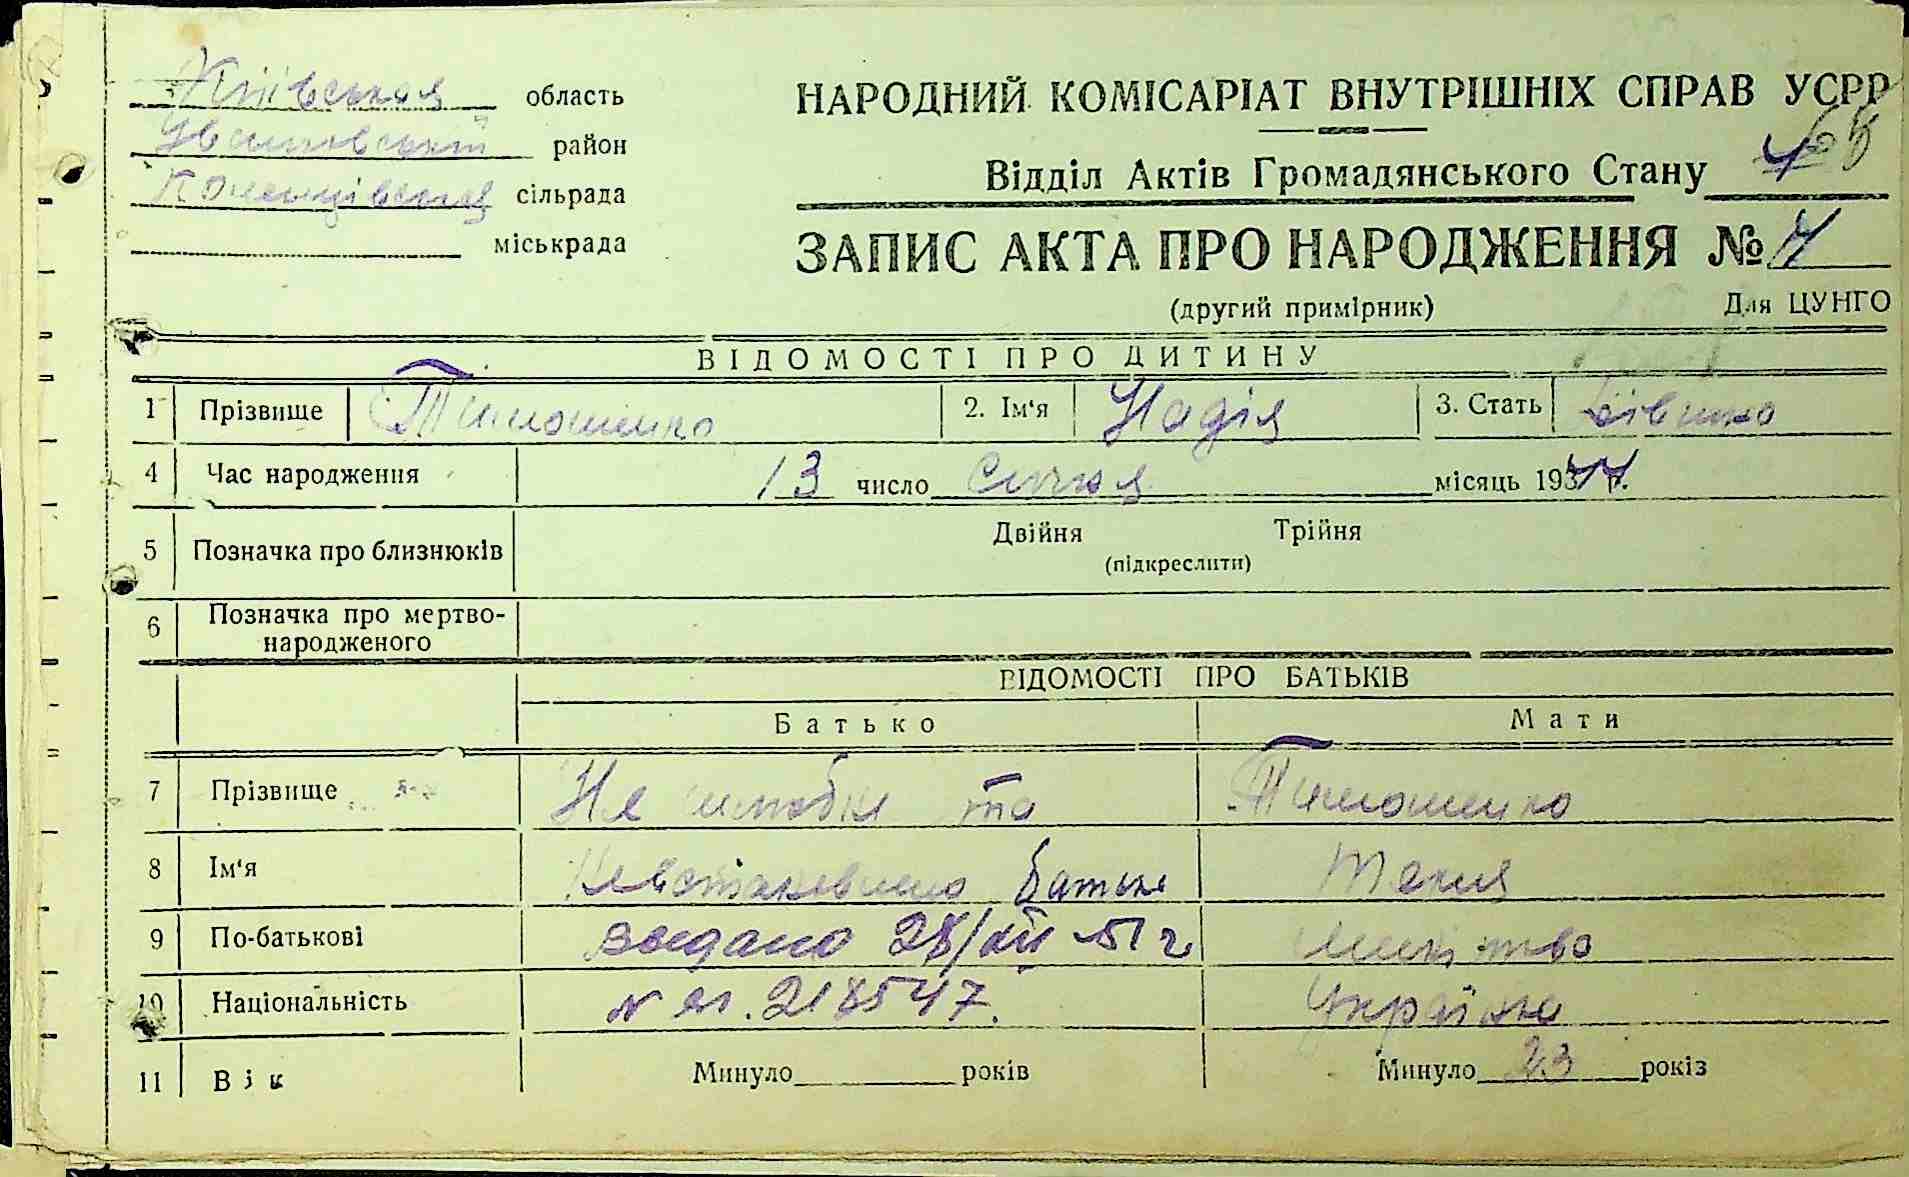 Київская область
Іванковський район
сільрада
міськрада
НАРОДНИЙ КОМІСАРІАТ ВНУТРІШНІХ СПРАВ УСРР
Відділ Актів Громадянського Стану
ЗАПИС АКТА ПРО НАРОДЖЕННЯ №
(другий примірник) Для ЦУНГО
ВІДОМОСТІ ПРО ДИТИНУ
1 Прізвище Тимошенко 2. Ім'я Надія 3. Стать дівчина
4 Час народження 13 число Січня місяць 1944 р.
5 Позначка про близнюків Двійня Трійня
(підкреслити)
6 Позначка про мертво-
народженого
ВІДОМОСТІ ПРО БАТЬКІВ
Батько Мати
7 Прізвище та Тимошенко
8 Ім'я Батьк
9 По-батькові видано 28/XII 51 г
10 Національність Українка
11 Вік Минуло років Минуло 23 років